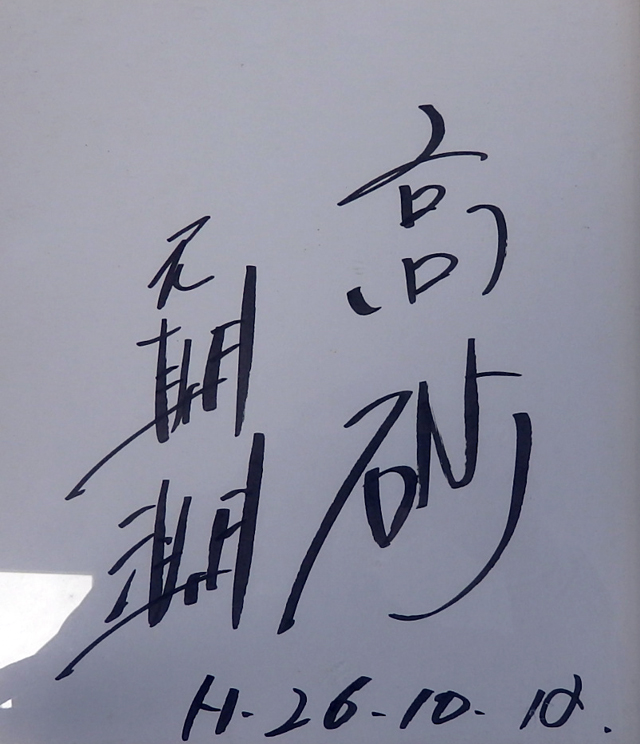 高砂
元朝潮
H-26-10-18.